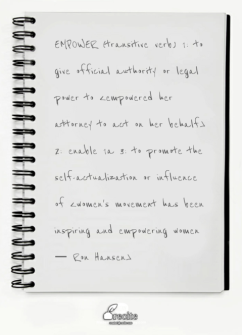 EMPOWER <transitive verb> 1: to
give official authority or legal
power to <empowered her
attorney to act on her behalf>
2: enable 1a 3: to promote the
self-actualization or influence
of <women's movement has been
inspiring and empowering women
— Ron Hansen>